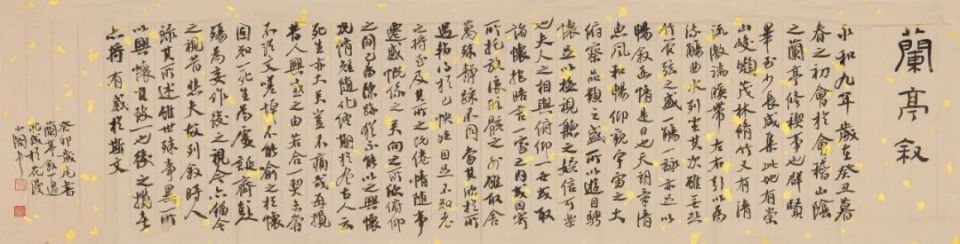 蘭亭叙
永和九年歲在癸丑暮
春之初會於會稽山陰
之蘭亭修禊事也群賢
畢至少長咸集此地有崇
山峻嶺茂林脩竹又有清
流激湍暎帶左右引以為
流觴曲水列坐其次雖無絲
竹管弦之盛一觴一詠亦足以
暢叙幽情是日也天朗氣清
惠風和暢仰觀宇宙之大
俯察品類之盛所以遊目騁
懷足以極視聽之娛信可樂
也夫人之相與俯仰一世或取
諸懷抱悟言一室之內或因寄
所托放浪形骸之外雖取舍
萬殊靜躁不同當其欣於所
遇暫得於己怏然自足不知老
之將至及其所之既倦情隨事
遷感慨係之矣向之所欣俯仰
之間已為陳跡猶不能不以之興懷
況脩短隨化終期於盡古人云
死生亦大矣豈不痛哉每攬
昔人興感之由若合一契未嘗
不臨文嗟悼不能喻之於懷
固知一死生為虛誕齊彭
殤為妄作後之視今亦猶今
之視昔悲夫故列叙時人
錄其所述雖世殊事異所
以興懷其致一也後之攬者
亦將有感於斯文
癸卯歲尾書
蘭亭叙一過
於花溪